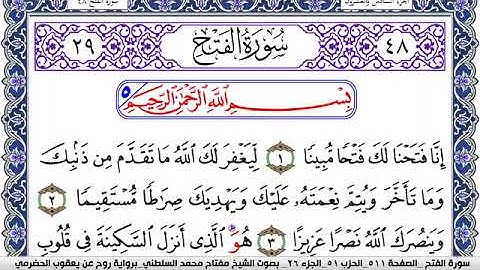 الجزء السادس والعشرون سورة الفتح ٤٨
٤٨ سُورَةُ الفَتْحِ ٢٩
بِسْمِ اللَّهِ الرَّحْمَٰنِ الرَّحِيمِ ٥
إِنَّا فَتَحْنَا لَكَ فَتْحًا مُّبِينًا ١ لِّيَغْفِرَ لَكَ اللَّهُ مَا تَقَدَّمَ مِن ذَنۢبِكَ
وَمَا تَأَخَّرَ وَيُتِمَّ نِعْمَتَهُۥ عَلَيْكَ وَيَهْدِيَكَ صِرَاطًا مُّسْتَقِيمًا ٢
وَيَنصُرَكَ اللَّهُ نَصْرًا عَزِيزًا ٣ هُوَ الَّذِي أَنزَلَ السَّكِينَةَ فِي قُلُوبِ
سورة الفتح _الصفحة ٥١١_الحزب ٥١_الجزء ٢٦_ بصوت الشيخ مفتاح محمد السلطني_برواية روح عن يعقوب الحضرمي